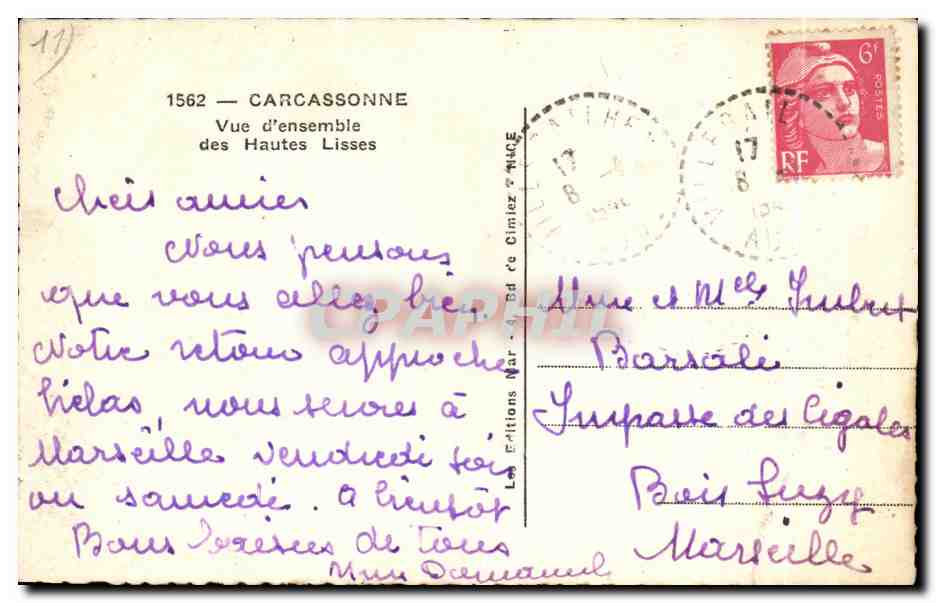 11)
1562 — CARCASSONNE
Vue d'ensemble
des Hautes Lisses
Chers amies
Nous pensons
que vous allez bien.
Notre retour approche
hélas, nous serons à
Marseille vendredi soir
ou samedi. A bientôt
Bons baisers de tous
Mme
Les Editions Mar - Bd de Cimiez - NICE
17
8
6F
POSTES
RF
Mme et Mlle Imbert
Impasse des Cigales
Bois Luzy
Marseille
CPAPHIL